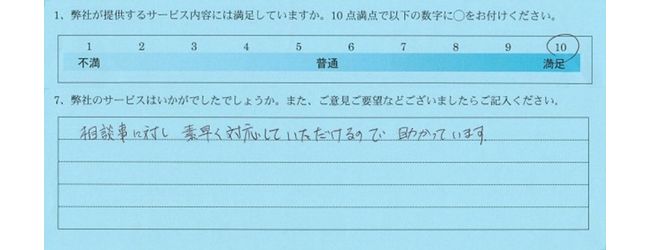 1、弊社が提供するサービス内容には満足していますか。10点満点で以下の数字に○をお付けください。
1 2 3 4 5 6 7 8 9 10
不満 普通 満足
7、弊社のサービスはいかがでしたでしょうか。また、ご意見ご要望などございましたらご記入ください。
相談事に対し 素早く対応していただけるので 助かっています。